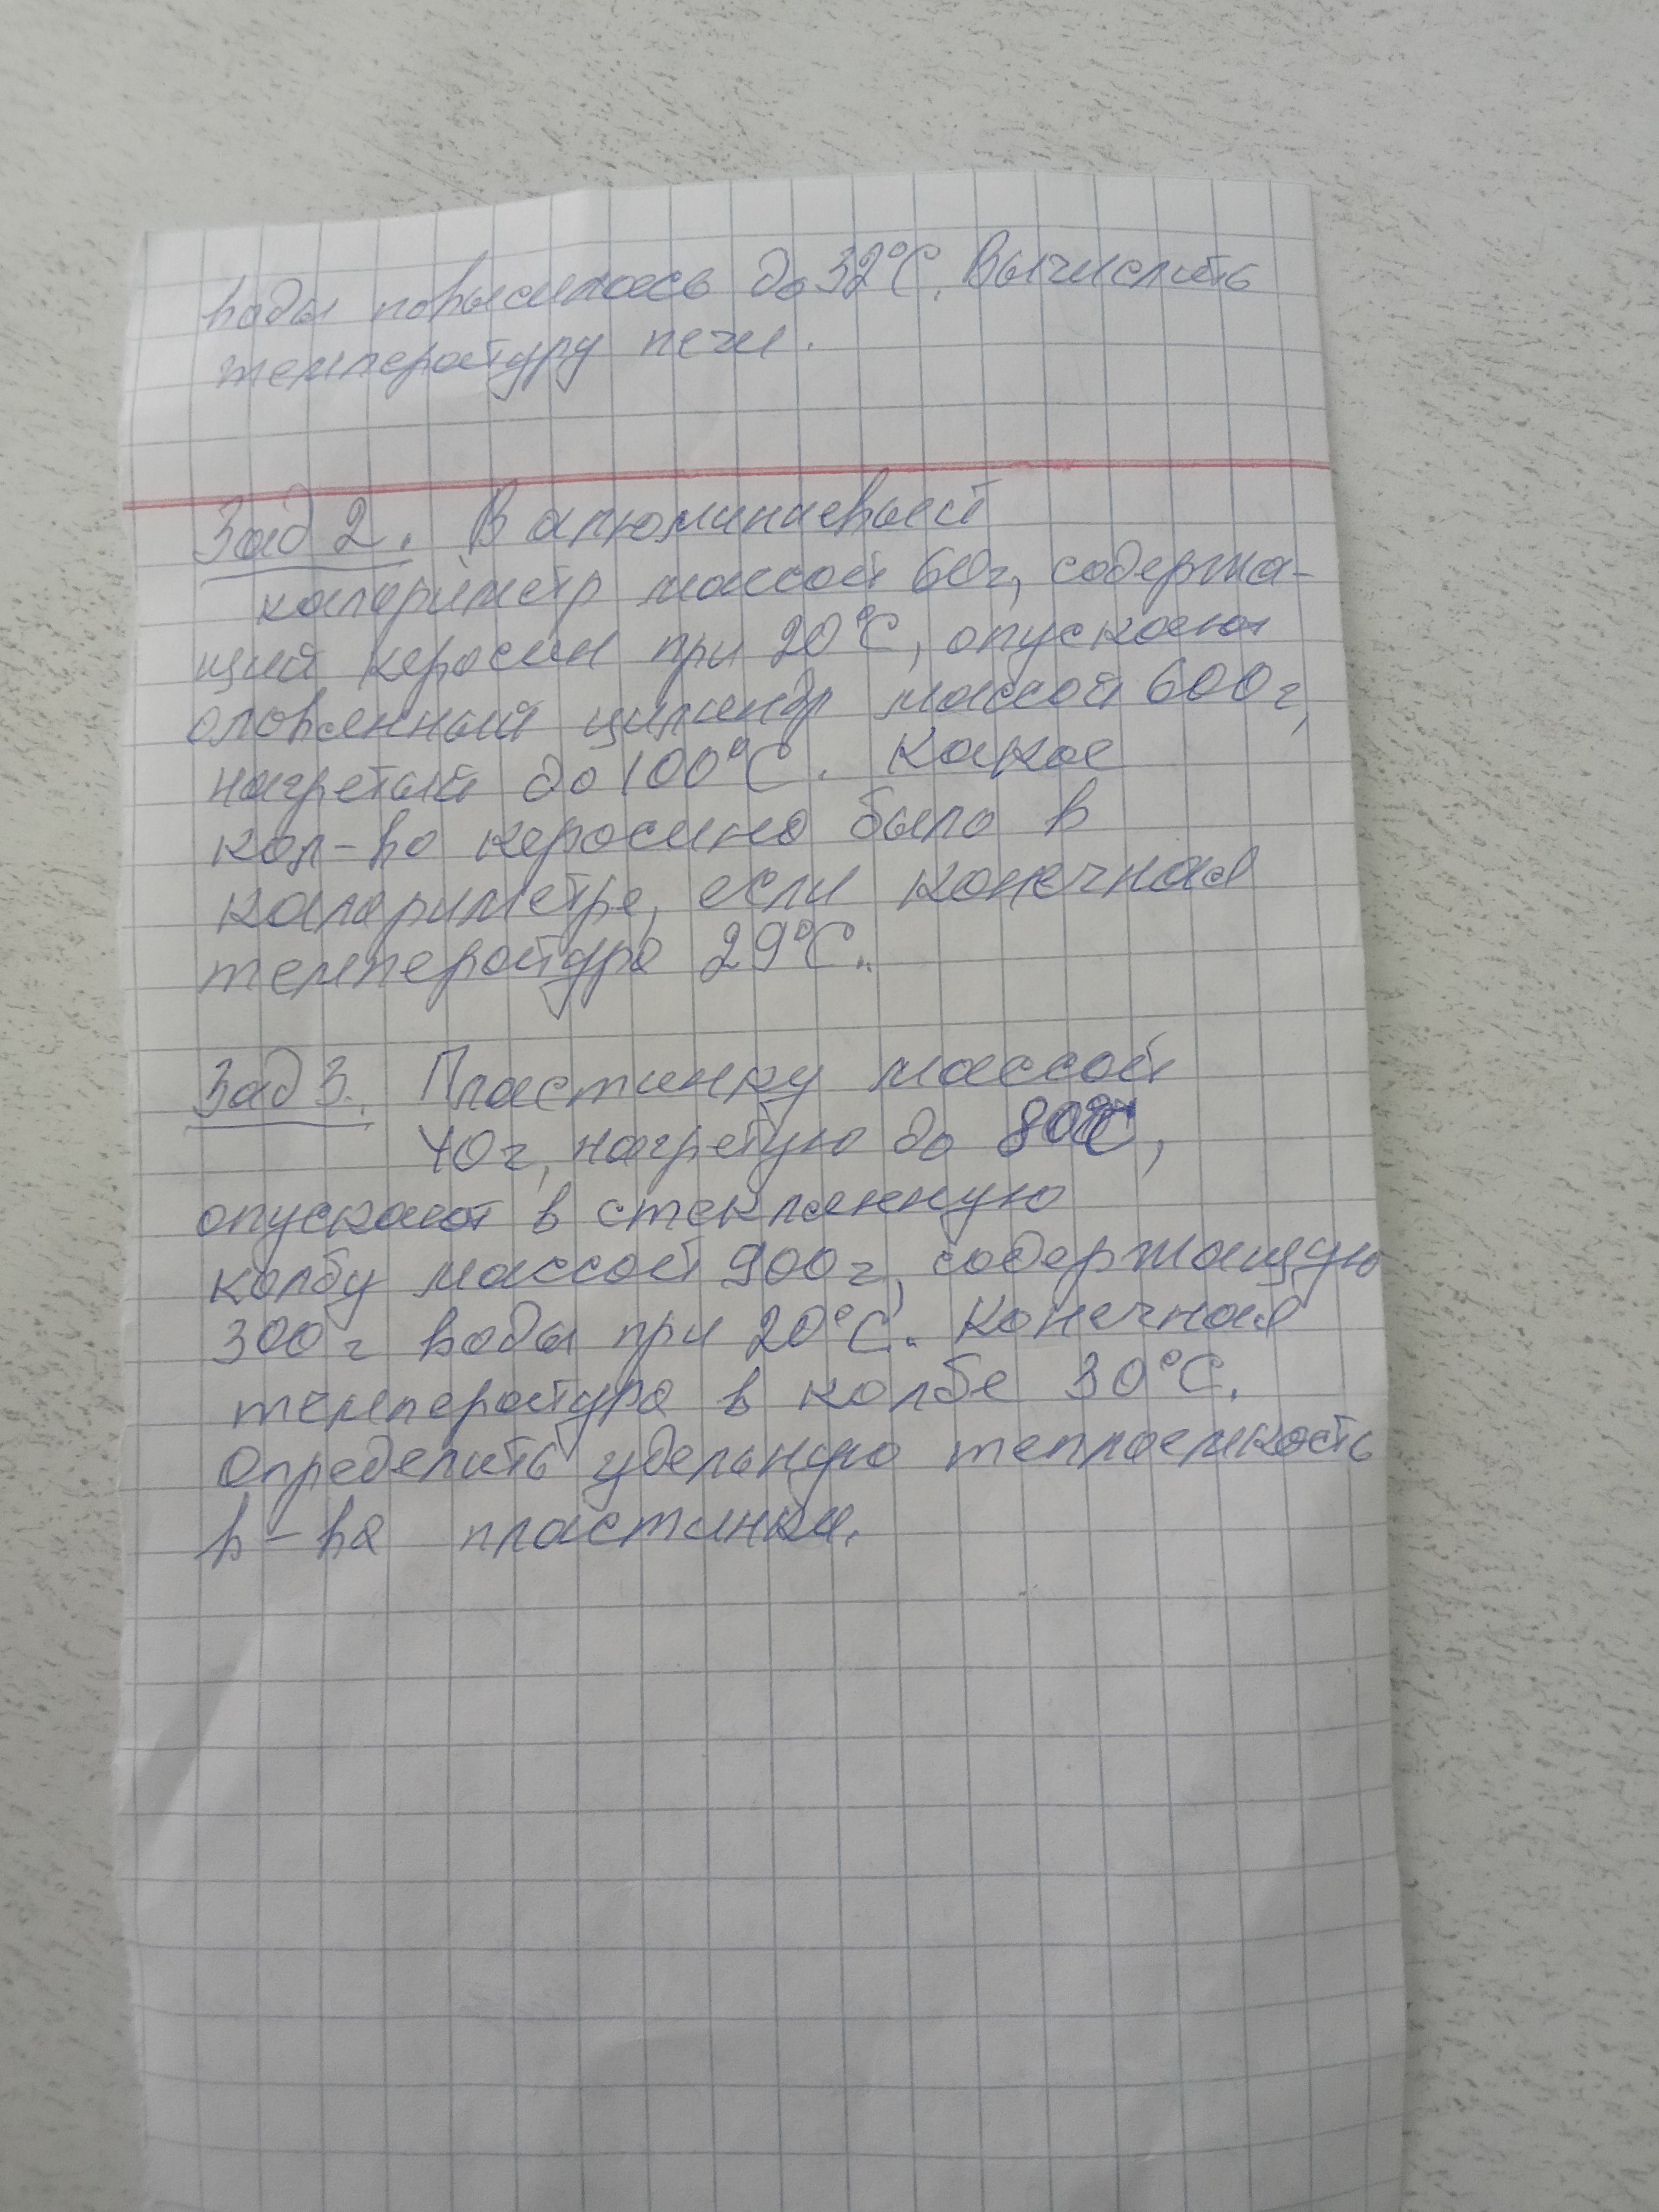 воды повысилась до 32°С. Вычислить
температуру печи.
Зад 2. В алюминиевый
калориметр массой 60г, содержа-
щий керосин при 20°С, опускают
оловянный цилиндр массой 600г,
нагретый до 100°С. Какое
кол-во керосина было в
калориметре, если конечная
температура 29°С.
Зад 3. Пластинку массой
40г, нагретую до 80°С,
опускают в стеклянную
колбу массой 900г, содержащую
300г воды при 20°С. Конечная
температура в колбе 30°С.
Определить удельную теплоемкость
в-ва пластинки.